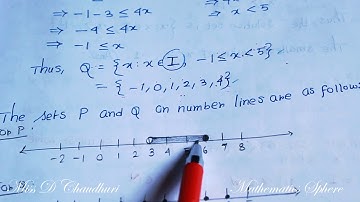 ⇒ -1-3 ≤ 4x ⇒ x < 5
⇒ -4 ≤ 4x
⇒ -1 ≤ x
Thus, Q = {x : x ∈ I, -1 ≤ x < 5}
= {-1, 0, 1, 2, 3, 4}
The sets P and Q on number lines are as follows
For P:
-2 -1 0 1 2 3 4 5 6 7 8
D Chaudhuri Mathematics Sphere